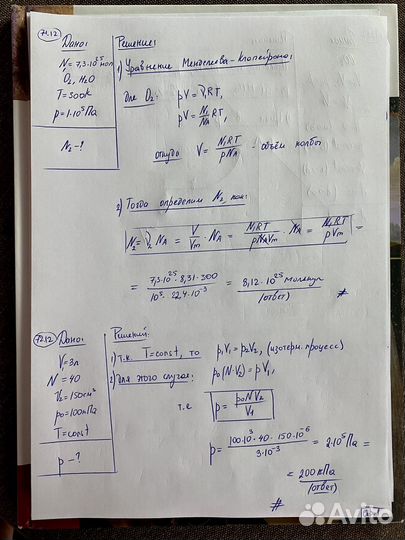 71.12
Дано:
N = 7,3·10²⁵ мол
O₂, H₂O
T = 300K
p = 1·10⁵ Па
N₂ - ?
Решение:
1) Уравнение Менделеева-Клапейрона:
для O₂: pV = ν₁RT,
pV = N₁/NA RT,
откуда V = N₁RT/pNA - объём колбы
2) Тогда определим N₂ как:
N₂ = ν₂ NA = V/Vm · NA = N₁RT/pNAVm · NA = N₁RT/pVm =
= 7,3·10²⁵·8,31·300/10⁵·22,4·10⁻³ = 8,12·10²⁵ молекул
(ответ)
#
72.12
Дано:
V₁ = 3л
N = 40
V₂ = 150см³
p₀ = 100кПа
T = const
p - ?
Решение:
1) т.к. T = const, то p₁V₁ = p₂V₂, (изотерм. процесс)
2) Для этого случая: p₀(N·V₂) = pV₁,
т.е p = p₀NV₂/V₁
p = 100·10³·40·150·10⁻⁶/3·10⁻³ = 2·10⁵ Па =
= 200кПа
(ответ)
#
Avito